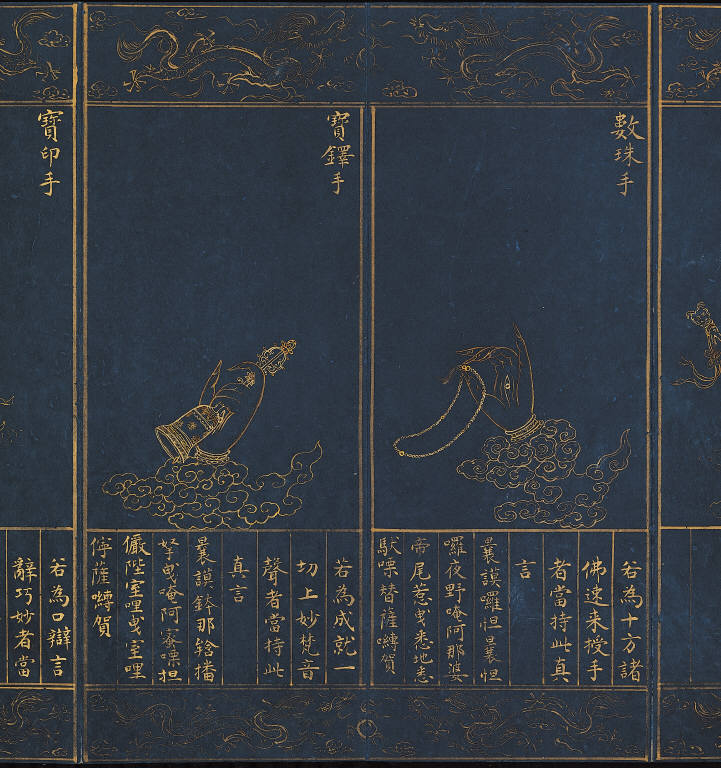 數珠手
若為十方諸
佛速来授手
者當持此真
言
曩謨囉怛曩怛
囉夜野唵阿那婆
帝尾惹曳悉地悉
馱㗚替薩嚩賀
寶鐸手
若為成就一
切上妙梵音
聲者當持此
真言
曩謨鉢那𤚥播
拏曳唵阿密㗚担
儼陛室哩曳室哩
儜薩嚩賀
寶印手
若為口辯言
辭巧妙者當